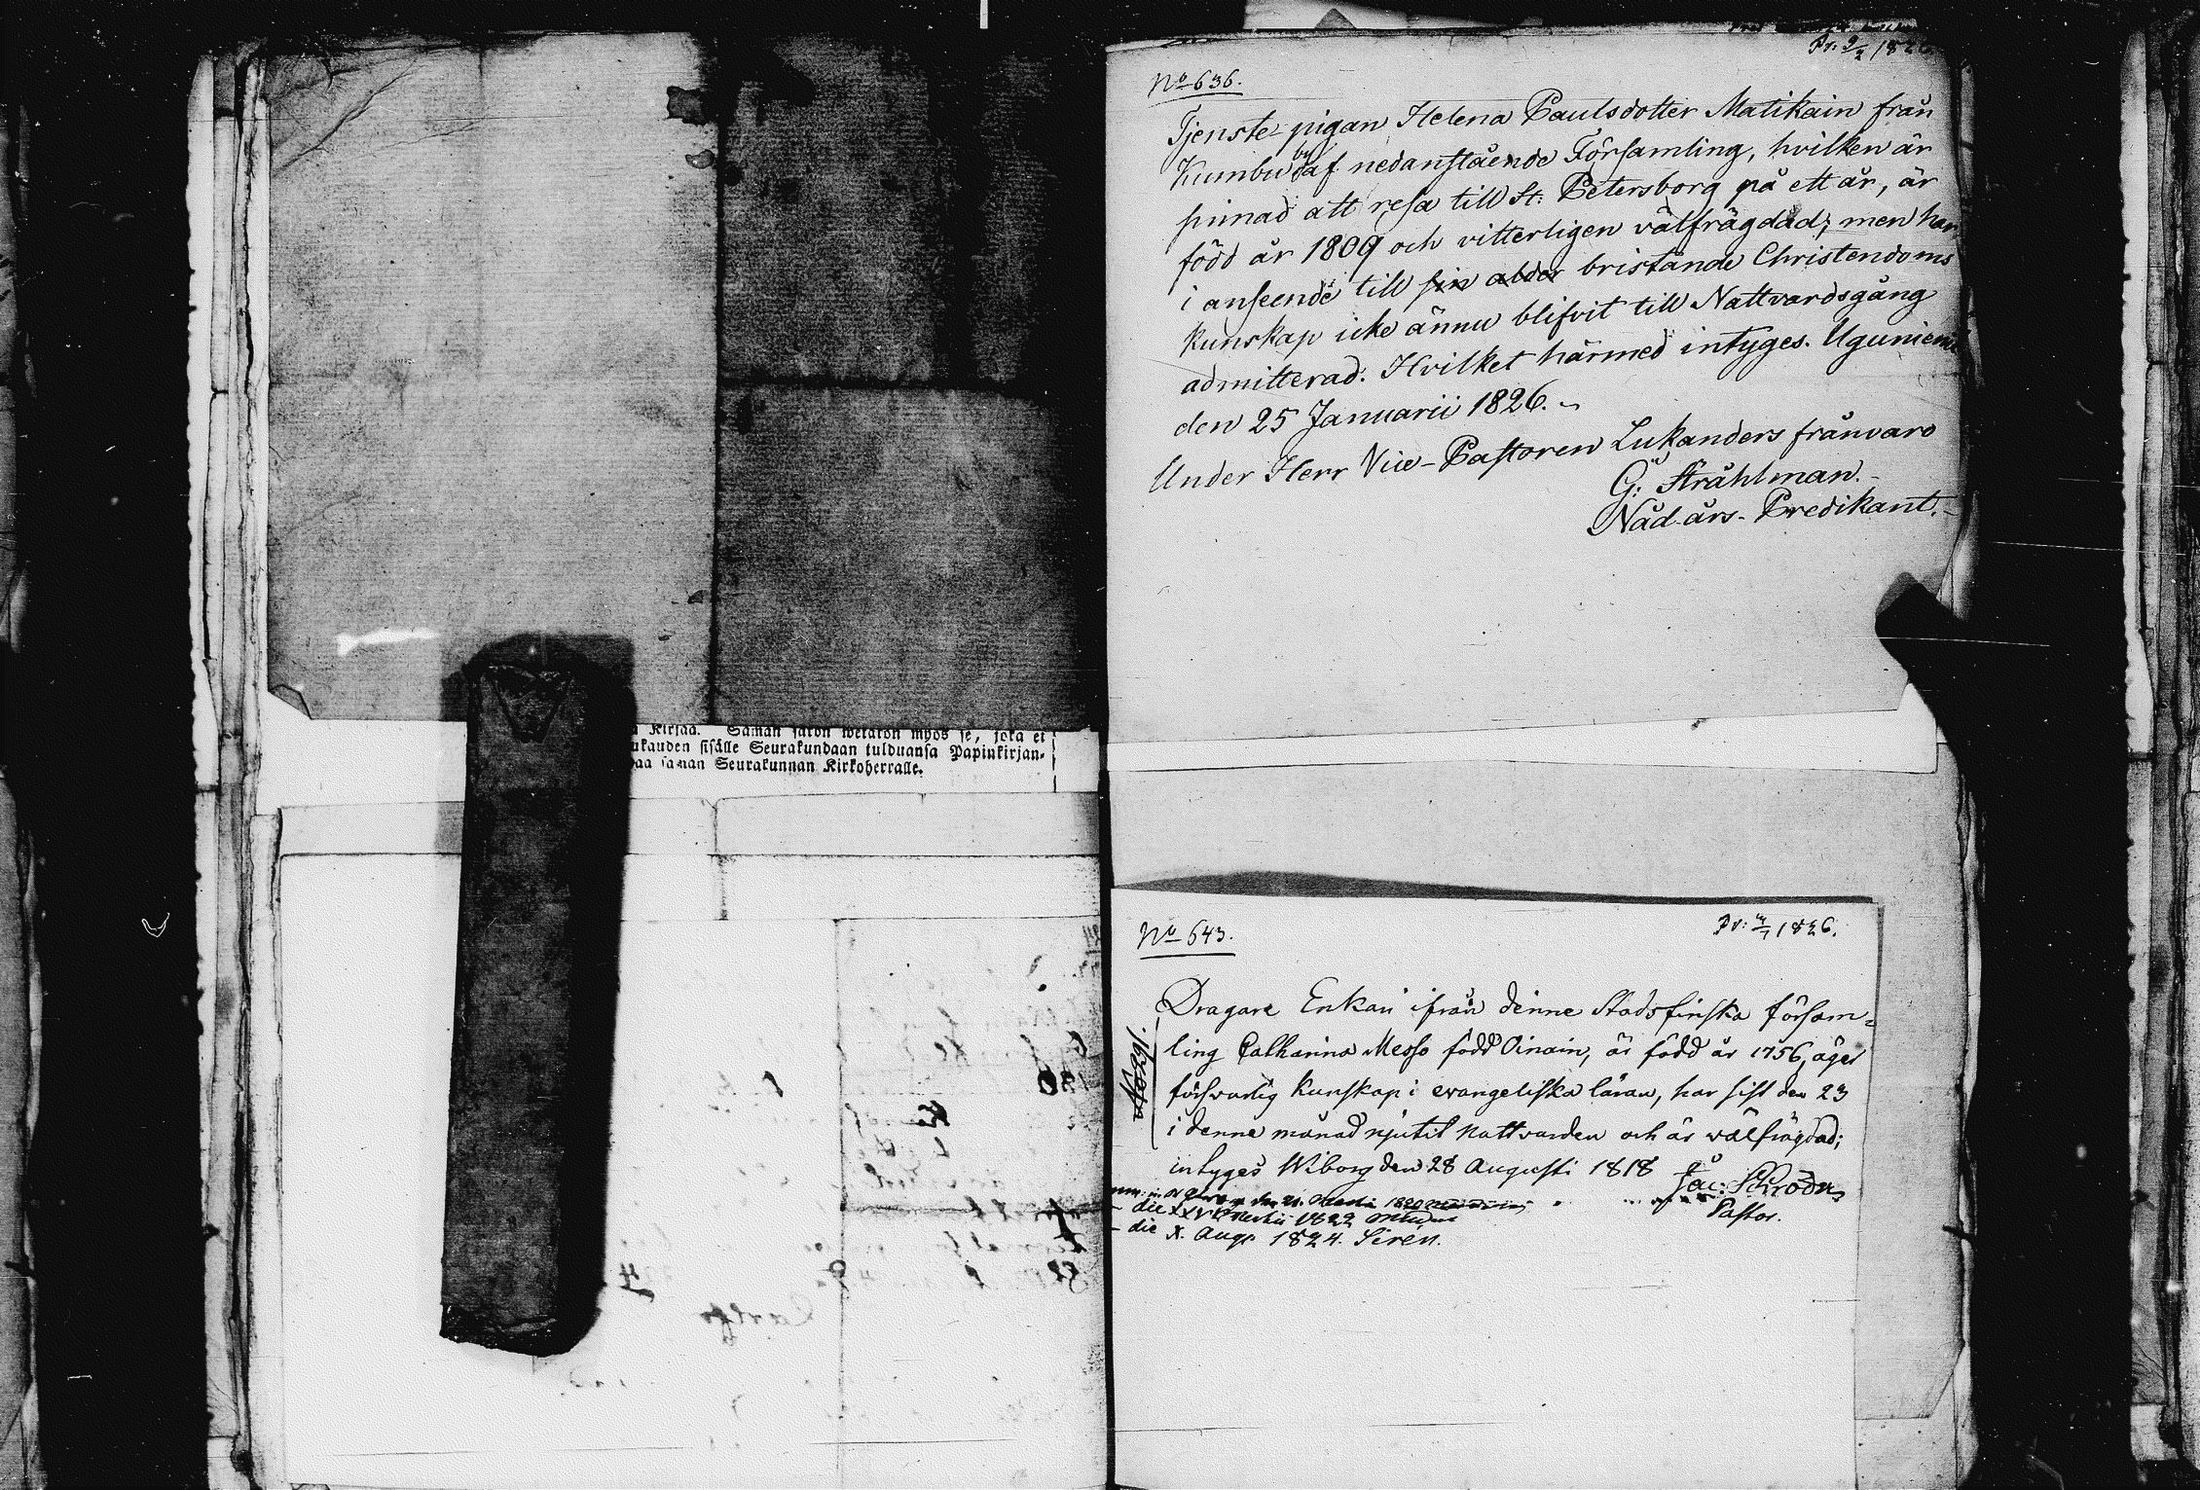 Kirjaa. Saman saton wetäkön myös se, joka ei
ukauden sisälle Seurakundaan tulduansa Papinkirjan-
paa saman Seurakunnan Kirkoherralle.
Pr: 9/2 1826
No 636.
Tjenste-pigan Helena Paulsdotter Matikain från
Kumbu by af nedanstående Församling, hvilken är
sinnad att resa till St. Petersborg på ett år, är
född år 1809 och vitterligen välfrägdad; men har
i anseende till sin alder bristande Christendoms
kunskap icke ännu blifvit till Nattvardsgång
admitterad. Hvilket härmed intyges. Uguniemi
den 25 Januarii 1826.
Under Herr Vice-Pastoren Lukanders frånvaro
G: Stråhlman.
Nåd-års-Predikant.
No 643.
Pr: 1826.
Dragare Enkan ifrån denne Stadsfinska försam=
ling Catharina Messo född Oinain, är född år 1756, äger
försvarlig kunskap i evangeliska läran, har sist den 23
i denne månad njutit nattvarden och är välfrägdad;
intyges Wiborg den 28 Augusti 1818 Jac: Schröder
Pastor.
die 1822
die X. Aug. 1824. Sirén.